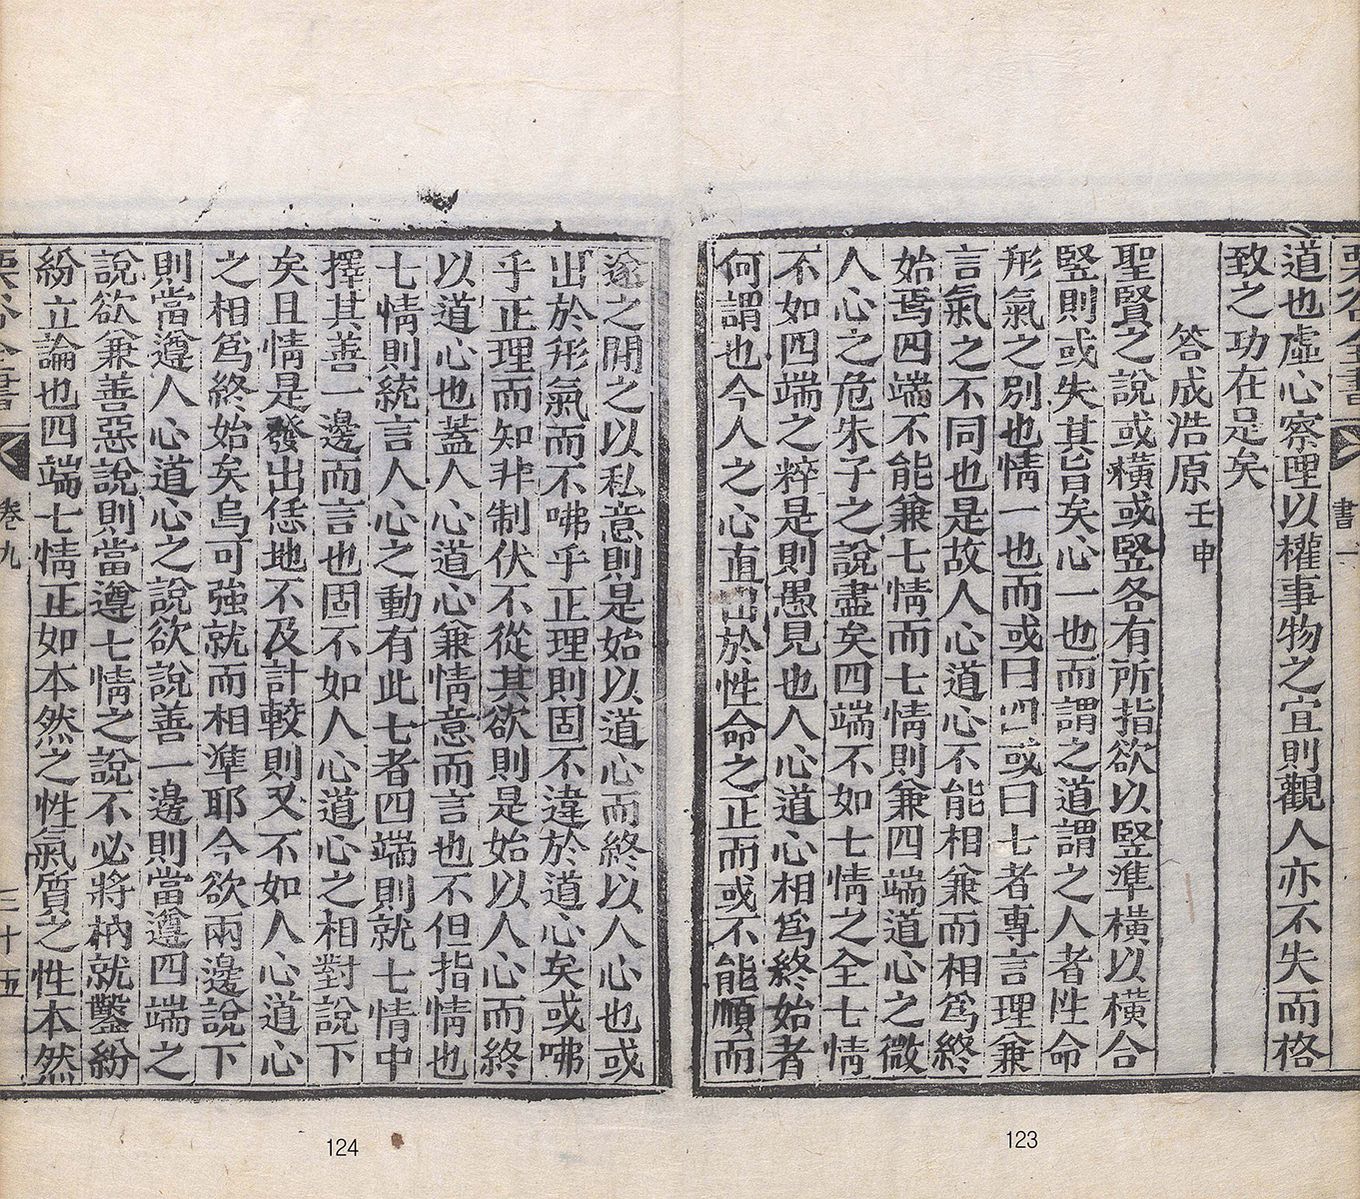 栗谷全書
書一
道也虛心察理以權事物之宜則觀人亦不失而格
致之功在是矣
答成浩原壬申
聖賢之說或橫或竪各有所指欲以竪準橫以橫合
竪則或失其旨矣心一也而謂之道謂之人者性命
形氣之別也情一也而或曰四或曰七者專言理兼
言氣之不同也是故人心道心不能相兼而相爲終
始焉四端不能兼七情而七情則兼四端道心之微
人心之危朱子之說盡矣四端不如七情之全七情
不如四端之粹是則愚見也人心道心相爲終始者
何謂也今人之心直出於性命之正而或不能順而
遂之閒之以私意則是始以道心而終以人心也或
出於形氣而不咈乎正理則固不違於道心矣或咈
乎正理而知非制伏不從其欲則是始以人心而終
以道心也蓋人心道心兼情意而言也不但指情也
七情則統言人心之動有此七者四端則就七情中
擇其善一邊而言也固不如人心道心之相對說下
矣且情是發出恁地不及計較則又不如人心道心
之相爲終始矣烏可強就而相準耶今欲兩邊說下
則當遵人心道心之說欲說善一邊則當遵四端之
說欲兼善惡說則當遵七情之說不必將枘就鑿紛
紛立論也四端七情正如本然之性氣質之性本然
栗谷全書
卷九
三十五
124
123